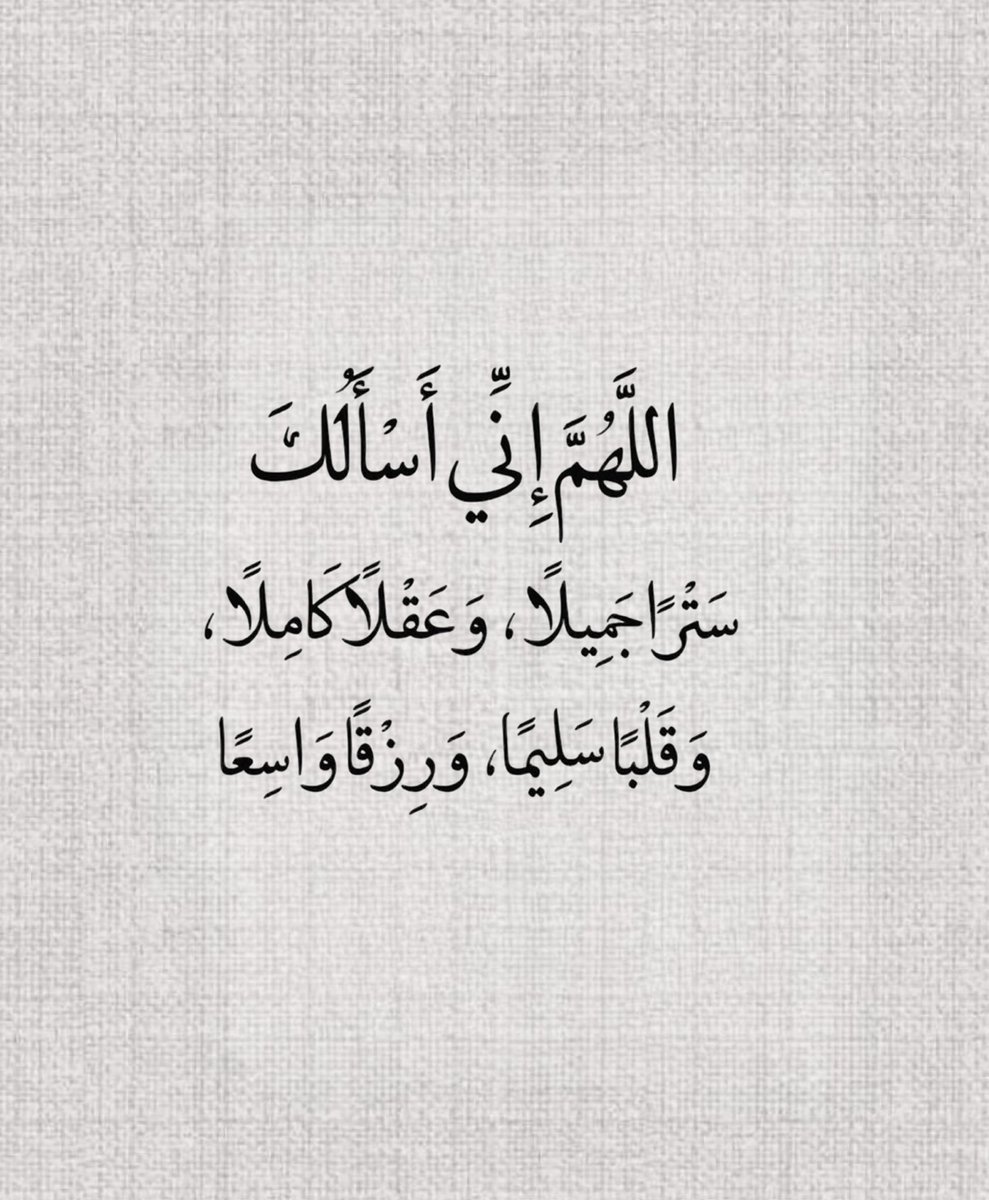 اللَّهُمَّ إِنِّي أَسْأَلُكَ
سَتْرًا جَمِيلًا، وَعَقْلًا كَامِلًا،
وَقَلْبًا سَلِيمًا، وَرِزْقًا وَاسِعًا